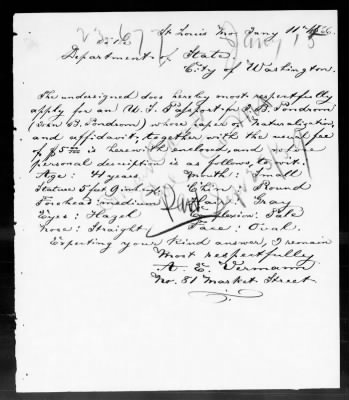 St Louis Mo Jany 11th
To the
Department of State
City of Washington.
The undersigned does hereby most respectfully
apply for an U. S. Passport for J. B. Pondrom
(Jean B. Pondrom) whose paper of Naturalization,
and affidavit, together with the usual fee
of $5 is herewith enclosed, and whose
personal description is as follows, to wit.
Age: 41 years Mouth: Small
Stature: 5 feet 9 inches Chin: Round
Forehead: medium Hair: Gray
Eyes: Hazel Complexion: Pale
Nose: Straight Face: Oval.
Expecting your kind answer, I remain
Most respectfully
A. E. Vermann
No. 81 Market Street